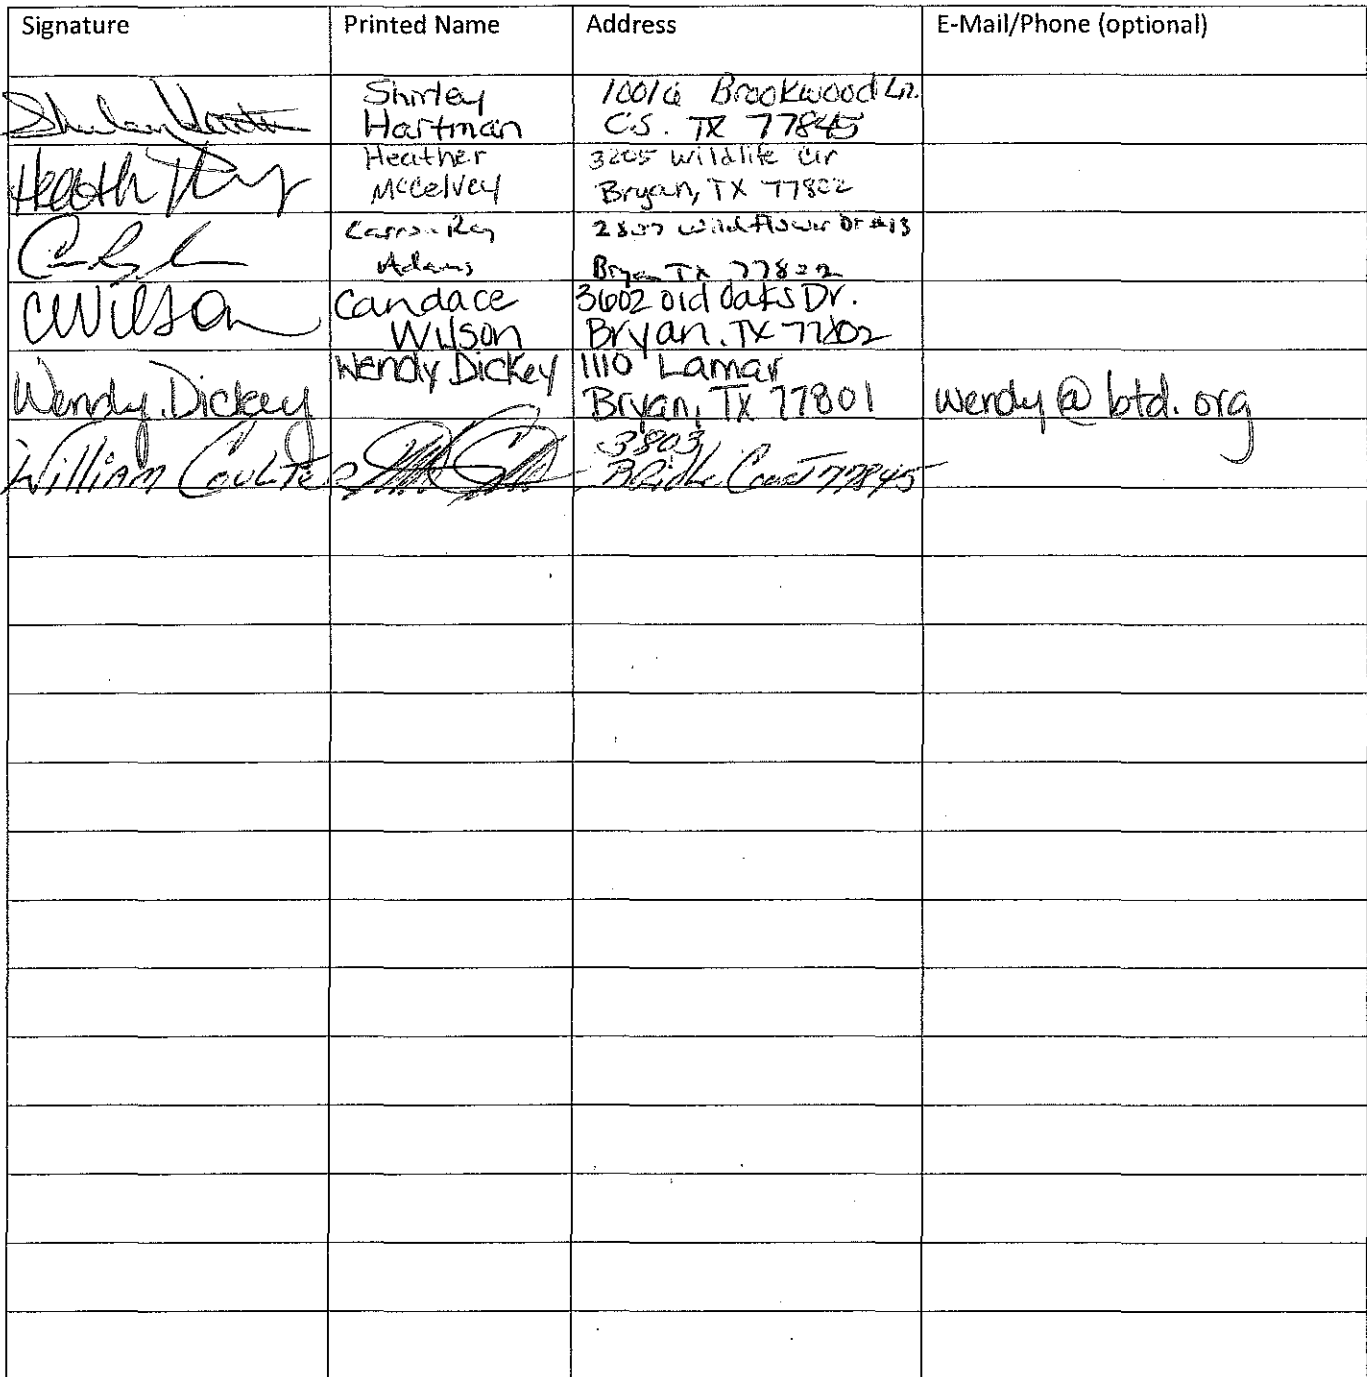 Signature Printed Name Address E-Mail/Phone (optional)
Shirley Hartman
Brookwood Ln.
C.S. TX 77845
Heather McCelvey
3205 Wildlife Cir
Bryan, TX 77802
Adams
Wildflower Dr #13
Bryan TX
CWilson
Candace Wilson
3602 Old Oaks Dr.
Bryan, TX 77802
Wendy Dickey
Wendy Dickey
1110 Lamar
Bryan, TX 77801
wendy@btd.org
William Coulter
3803
Court 77845